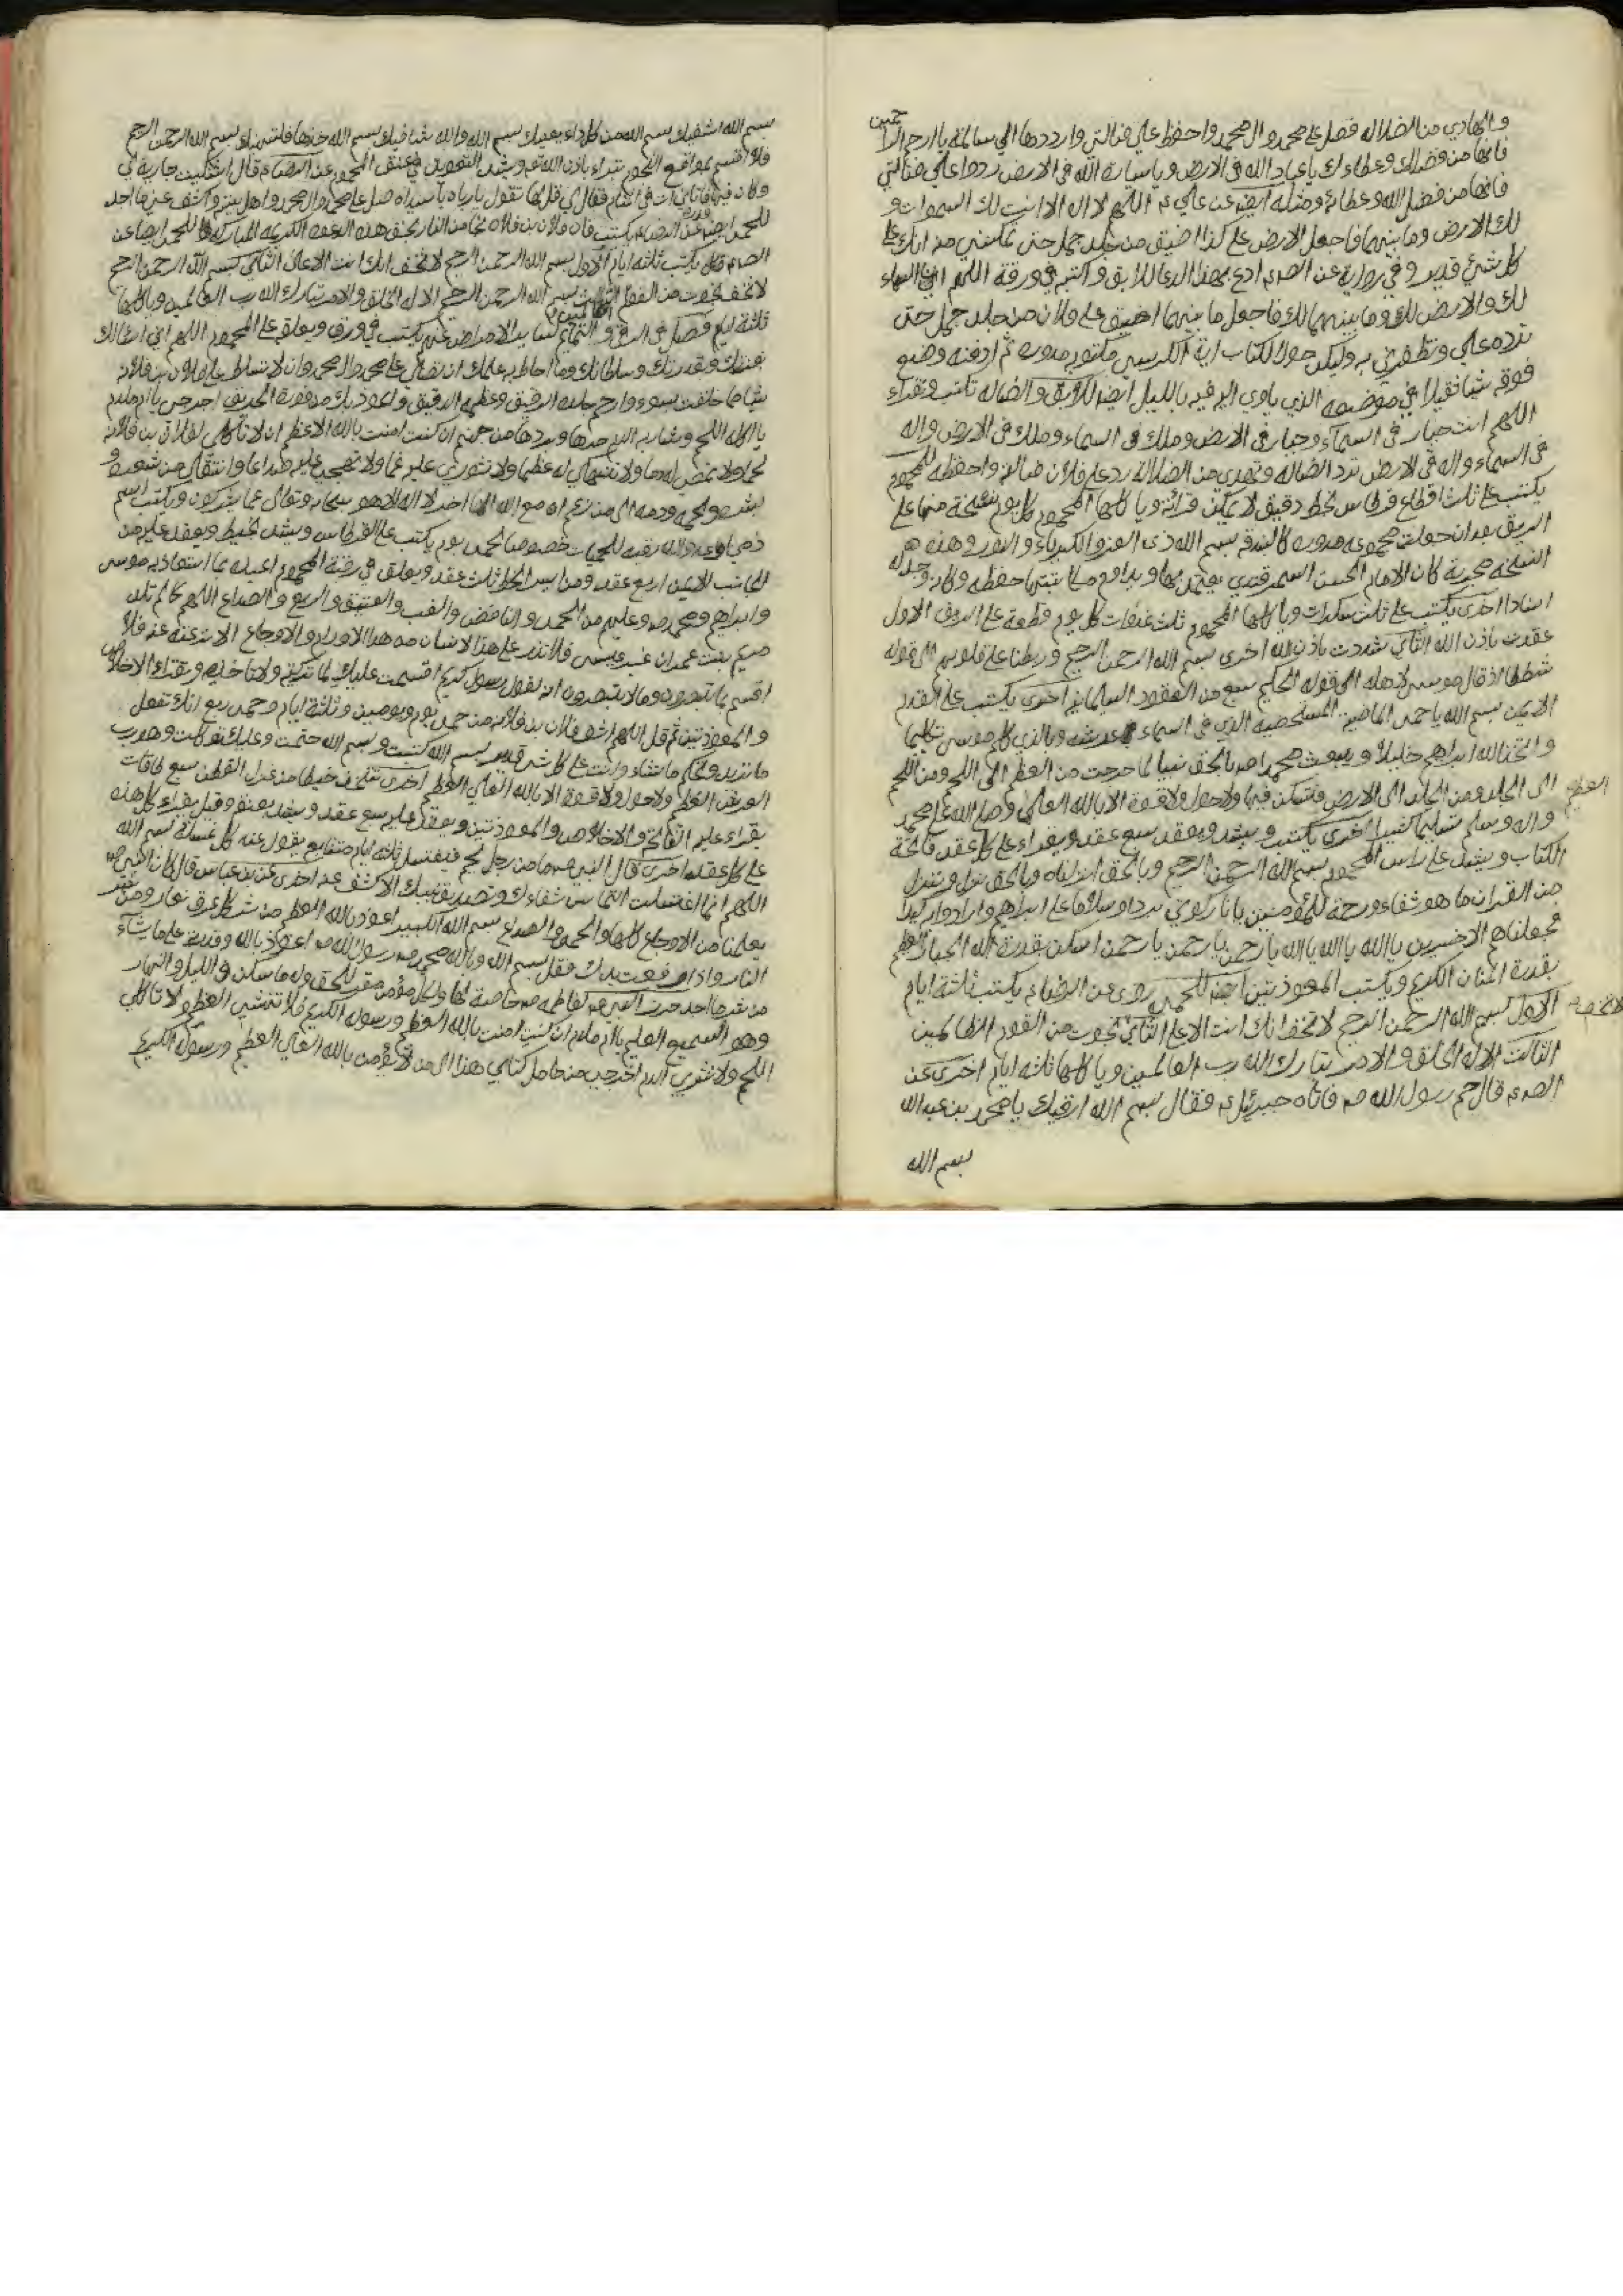 والهادي من الضلاله فصل على محمد وال محمد واحفظ علي ضالتي وارددها الي سالمة يا ارحم الراحمين
فانها من فضلك وعطاءك يا عباد الله في الارض ويا سيارة الله في الارض ردوا علي ضالتي
فانها من فضل الله وعطائه ومثله ايضا عن علي ع اللهم لا اله الا انت لك السموات و
لك الارض وما بينهما فاجعل الارض على كذا اضيق من جلد جمل حتى تمكنني منه انك على
كل شئ قدير وفي رواية عن الصادق ادع بهذا الدعا للابق واكتبه في ورقة اللهم ان السماء
لك والارض لك وما بينهما لك فاجعل ما بينهما اضيق على فلان من جلد جمل حتى
ترده علي وتظفرني به وليكن حول الكتاب اية الكرسي مكتوبه مدوره ثم ادفنه وضع
فوقه شيا ثقيلا في موضعه الذي ياوي اليه فيه بالليل ايضا للابق والضاله تكتب وتقراء
اللهم انت جبار في السماء وجبار في الارض وملك في السماء وملك في الارض واله
في السماء واله في الارض ترد الضاله وتهدي من الضلاله رد على فلان ضالته واحفظه للمحموم
يكتب على ثلث اقطاع قرطاس بخط دقيق لا يمكن قرائته وياكلها المحموم كل يوم نسخة منها على
الريق بعد ان جعلت مجموعه مدوره كالبندقه بسم الله ذي العز والكبرياء والنور وهذه
النسخه مجربة كان الامام الحسن السمرقندي يعمل بها ويداوم
اسنادا اخرى يكتب على ثلث سكرات وياكلها المحموم ثلث غدوات كل يوم قطعة على الريق الاول
عقدت باذن الله الثاني شددت باذن الله اخرى بسم الله الرحمن الرحيم وربطنا على قلوبهم الى قوله
شططا اذ قال موسى لاهله الى قوله الحكيم سبع من العقود السليمانيه اخرى يكتب على القدم
الايمن بسم الله يا حمى الماضية المستحصيه الذي في السماء عرشه وبالذي كلم موسى تكليما
واتخذ الله ابراهيم خليلا وبعث محمدا ص بالحق نبيا لما خرجت من العظم الى اللحم ومن اللحم
الى الجلد ومن الجلد الى الارض فتسكن فيها ولا حول ولا قوة الا بالله العلي العظيم وصلى الله على محمد
واله وسلم تسليما كثيرا اخرى يكتب ويشد ويعقد سبع عقد ويقراء على كل عقد فاتحة
الكتاب ويشد على راس المحموم بسم الله الرحمن الرحيم وبالحق انزلناه وبالحق نزل وننزل
من القران ما هو شفاء ورحمة للمؤمنين يا نار كوني بردا وسلاما على ابراهيم وارادوا به كيدا
فجعلناهم الاخسرين يا الله يا الله يا الله يا رحمن يا رحمن يا رحمن اسكن بقدرة الله الجبار العظيم
بقدرة المنان الكريم ويكتب المعوذتين ايضا للحمى روى عن الرضا ع يكتب ثلثة ايام
الاول بسم الله الرحمن الرحيم لا تخف انك انت الاعلى الثاني لا تخف نجوت من القوم الظالمين
الثالث الا له الخلق والامر تبارك الله رب العالمين وياكلها ثلثه ايام اخرى عن
الصادق قال حم رسول الله ص فاتاه جبرئيل ع فقال بسم الله ارقيك يا محمد بن عبد الله
بسم الله
بسم الله اشفيك بسم الله من كل داء يعنيك بسم الله والله شافيك بسم الله خذها فلتهنيك بسم الله الرحمن الرحيم
فلا اقسم بمواقع النجوم تبراء باذن الله تع ويشد التعويذ في عنق المحموم عن الرضا ع قال اشتكيت جارية لي
وكان فيها فاتاني ات في المنام فقال لي قل لها تقول يا رباه يا سيداه صل على محمد وال محمد واهل بيته واكشف عني ما اجد
للحمى ايضا عن الرضا ع يكتب فان فلان بن فلانه نجا من النار بحق هذه الدعوه الكريمه المباركه للحمى ايضا عن
الصادق قال يكتب ثلثه ايام الاول بسم الله الرحمن الرحيم لا تخف انك انت الاعلى الثاني بسم الله الرحمن الرحيم
لا تخف نجوت من القوم الظالمين الثالث بسم الله الرحمن الرحيم الا له الخلق والامر تبارك الله رب العالمين وياكلها
ثلثة ايام فصل في الرقى والتمايم لساير الامراض عنهم يكتب في ورق ويعلق على المحموم اللهم اني اسالك
بعزتك وقدرتك وسلطانك وما احاط به علمك ان تصلي على محمد وال محمد وان لا تسلط على فلان بن فلانه
شيا مما خلقت بسوء وارحم جلده الرقيق وعظمه الدقيق واعوذ بك من فورة الحريق اخرجي يا ام ملدم
يا اكلة اللحم وشاربه الدم حرها وبردها من جهنم ان كنت امنت بالله الاعظم ان لا تاكلي لفلان بن فلانه
لحما ولا تمصي له دما ولا تنهكي له عظما ولا تثوري عليه غما ولا تهيجي عليه صداعا وانتقلي من شعره و
بشره ولحمه ودمه الى من زعم ان مع الله الها اخر لا اله الا هو سبحانه وتعالى عما يشركون ويكتب اسم
ذمي او عدو الله رقيه للحميات خصوصا لحمى يوم يكتب على القرطاس ويشد بخيط ويعقد عليه من
الجانب الايمن اربع عقد ومن ايسر الخط ثلث عقد ويعلق في رقبة المحموم اعيذه بما استعاذ به موسى
وابراهيم ومحمد ص وعليهم من الحمى والنافض والغب والعتيق والربع والصداع اللهم كما لم تلد
مريم بنت عمران غير عيسى فلا تذر على هذا الانسان من هذا الاوراد والاوجاع الا نزعته عنه فلا
اقسم بما تبصرون وما لا تبصرون انه لقول رسول كريم اقسمت عليك لما تركته ولا تاخذيه وتقراء الاخلاص
والمعوذتين ثم قل اللهم اشف فلان بن فلانه من حمى يوم ويومين وثلثة ايام وحمى ربع انك تفعل
ما تريد وتحكم ما تشاء وانت على كل شئ قدير بسم الله كتبت وبسم الله ختمت وعليك توكلت وهو رب
العرش العظيم ولا حول ولا قوة الا بالله العلي العظيم اخرى تتخذ خيطا من غزل القطن سبع طاقات
يقراء عليه الفاتحة والاخلاص والمعوذتين ويعقد عليه سبع عقد ويشد بعنقه وقيل يقراء كل هذه
على كل عقده اخرى قال النبي ص ما من رجل يحم فيغتسل ثلثه ايام متتابع يقول عند كل غسله بسم الله
اللهم انما اغتسلت التماس شفاءك وتصديق نبيك الا كشف عنه اخرى عن بن عباس قال كان النبي ص
يعلمنا من الاوجاع كلها والحمى والصداع بسم الله الكبير اعوذ بالله العظيم من شر كل عرق نعار ومن شر
النار واذا رفعت يدك فقل بسم الله وبالله محمد رسول الله ص اعوذ بالله وقدرته على ما يشاء
من شر ما اجد حرز النبي ص لفاطمه ص خاصة لها ولكل مؤمن مقر للحق وله ما سكن في الليل والنهار
وهو السميع العليم يا ام ملدم ان كنت امنت بالله العظيم ورسوله الكريم فلا تهشمي العظم ولا تاكلي
اللحم ولا تثوري الدم اخرجي من حامل كتابي هذا الى من لا يؤمن بالله العلي العظيم ورسوله الكريم